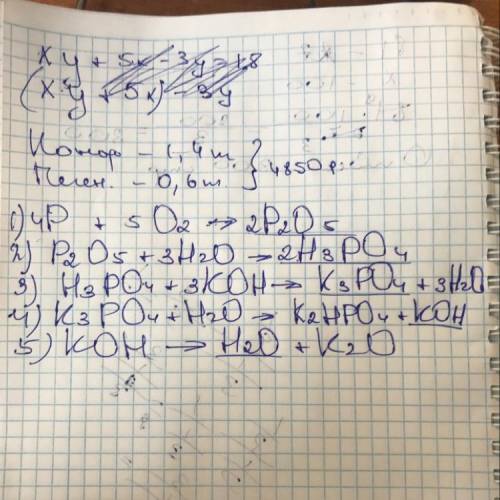 xy + 5x - 3y = 18
(x y + 5x) - 3y
- 1,4т.
- 0,6т. } 4850
1) 4P + 5O2 → 2P2O5
2) P2O5 + 3H2O → 2H3PO4
3) H3PO4 + 3KOH → K3PO4 + 3H2O
4) K3PO4 + H2O → K2HPO4 + KOH
5) KOH → H2O + K2O